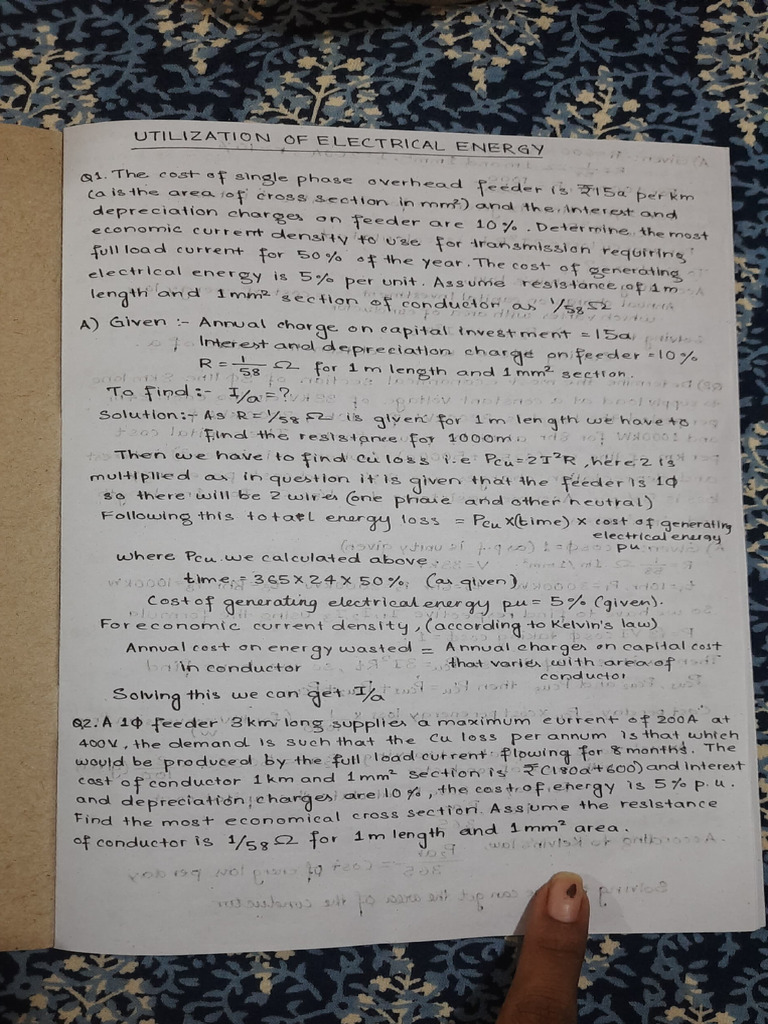 UTILIZATION OF ELECTRICAL ENERGY
Q1. The cost of single phase overhead feeder is ₹15a per km
(a is the area of cross section in mm²) and the interest and
depreciation charges on feeder are 10%. Determine the most
economic current density to use for transmission requiring
full load current for 50% of the year. The cost of generating
electrical energy is 5% per unit. Assume resistance of 1m
length and 1mm² section of conductor as 1/58 Ω
A) Given :- Annual charge on capital investment = 15a
Interest and depreciation charge on feeder = 10%
R = 1/58 Ω for 1m length and 1mm² section.
To find :- I/a = ?
Solution:- As R = 1/58 Ω is given for 1m length we have to
find the resistance for 1000m
Then we have to find Cu loss i.e Pcu = 2I²R, here 2 is
multiplied as in question it is given that the feeder is 1Φ
so there will be 2 wires (one phase and other neutral)
Following this total energy loss = Pcu x (time) x cost of generating
electrical energy
pu
where Pcu we calculated above
time = 365 x 24 x 50% (as given)
Cost of generating electrical energy pu = 5% (given).
For economic current density, (according to Kelvin's law)
Annual cost on energy wasted = Annual charges on capital cost
in conductor that varies with area of
conductor
Solving this we can get I/a
Q2. A 1Φ feeder 3km long supplies a maximum current of 200A at
400V, the demand is such that the Cu loss per annum is that which
would be produced by the full load current flowing for 8 months. The
cost of conductor 1km and 1mm² section is ₹(180a+600) and interest
and depreciation charges are 10%, the cost of energy is 5% p.u.
Find the most economical cross section. Assume the resistance
of conductor is 1/58 Ω for 1m length and 1mm² area.